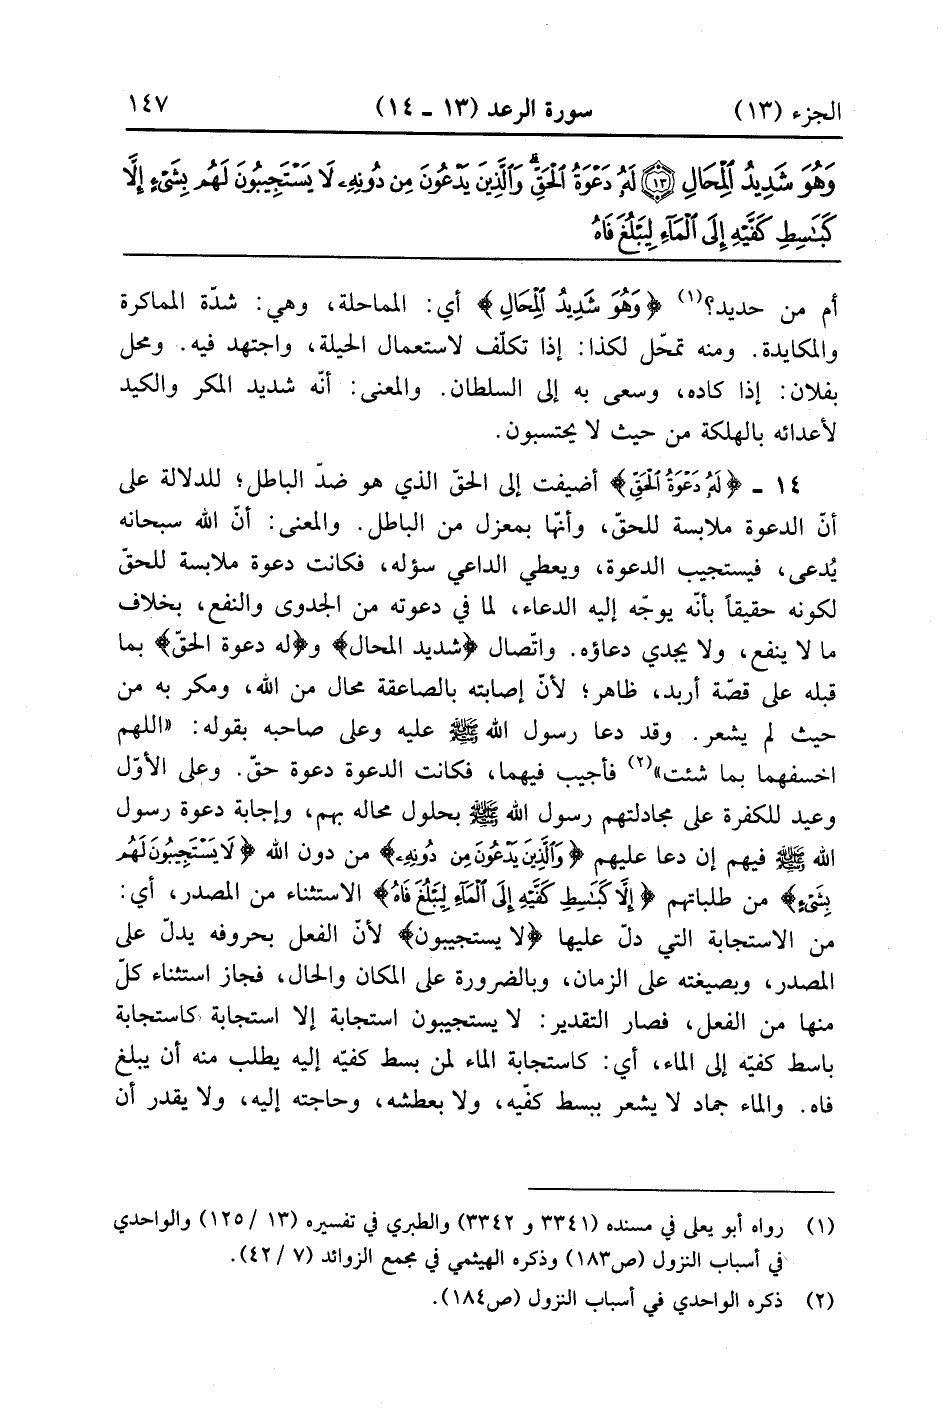 الجزء (١٣) سورة الرعد (١٣ ـ ١٤) ١٤٧
وَهُوَ شَدِيدُ ٱلْمِحَالِ ١٣ لَهُۥ دَعْوَةُ ٱلْحَقِّ ۖ وَٱلَّذِينَ يَدْعُونَ مِن دُونِهِۦ لَا يَسْتَجِيبُونَ لَهُم بِشَىْءٍ إِلَّا
كَبَـٰسِطِ كَفَّيْهِ إِلَى ٱلْمَآءِ لِيَبْلُغَ فَاهُ
أم من حديد؟(١) ﴿وَهُوَ شَدِيدُ ٱلْمِحَالِ﴾ أي: المماحلة، وهي: شدّة المماكرة
والمكايدة. ومنه تمحّل لكذا: إذا تكلّف لاستعمال الحيلة، واجتهد فيه. ومحل
بفلان: إذا كاده، وسعى به إلى السلطان. والمعنى: أنّه شديد المكر والكيد
لأعدائه بالهلكة من حيث لا يحتسبون.
١٤ ـ ﴿لَهُۥ دَعْوَةُ ٱلْحَقِّ﴾ أضيفت إلى الحقّ الذي هو ضدّ الباطل؛ للدلالة على
أنّ الدعوة ملابسة للحقّ، وأنّها بمعزل من الباطل. والمعنى: أنّ الله سبحانه
يُدعى، فيستجيب الدعوة، ويعطي الداعي سؤله، فكانت دعوة ملابسة للحقّ
لكونه حقيقاً بأنّه يوجّه إليه الدعاء، لما في دعوته من الجدوى والنفع، بخلاف
ما لا ينفع، ولا يجدي دعاؤه. واتّصال ﴿شديد المحال﴾ و﴿له دعوة الحقّ﴾ بما
قبله على قصّة أربد، ظاهر؛ لأنّ إصابته بالصاعقة محال من الله، ومكر به من
حيث لم يشعر. وقد دعا رسول الله ﷺ عليه وعلى صاحبه بقوله: «اللهم
اخسفهما بما شئت»(٢) فأجيب فيهما، فكانت الدعوة دعوة حقّ. وعلى الأوّل
وعيد للكفرة على مجادلتهم رسول الله ﷺ بحلول محاله بهم، وإجابة دعوة رسول
الله ﷺ فيهم إن دعا عليهم ﴿وَٱلَّذِينَ يَدْعُونَ مِن دُونِهِۦ﴾ من دون الله ﴿لَا يَسْتَجِيبُونَ لَهُم
بِشَىْءٍ﴾ من طلباتهم ﴿إِلَّا كَبَـٰسِطِ كَفَّيْهِ إِلَى ٱلْمَآءِ لِيَبْلُغَ فَاهُ﴾ الاستثناء من المصدر، أي:
من الاستجابة التي دلّ عليها ﴿لا يستجيبون﴾ لأنّ الفعل بحروفه يدلّ على
المصدر، وبصيغته على الزمان، وبالضرورة على المكان والحال، فجاز استثناء كلّ
منها من الفعل، فصار التقدير: لا يستجيبون استجابة إلا استجابة كاستجابة
باسط كفيّه إلى الماء، أي: كاستجابة الماء لمن بسط كفيّه إليه يطلب منه أن يبلغ
فاه. والماء جماد لا يشعر ببسط كفّيه، ولا بعطشه، وحاجته إليه، ولا يقدر أن
(١) رواه أبو يعلى في مسنده (٣٣٤١ و ٣٣٤٢) والطبري في تفسيره (١٣ /١٢٥) والواحدي
في أسباب النزول (ص١٨٣) وذكره الهيثمي في مجمع الزوائد (٧ /٤٢).
(٢) ذكره الواحدي في أسباب النزول (ص١٨٤).